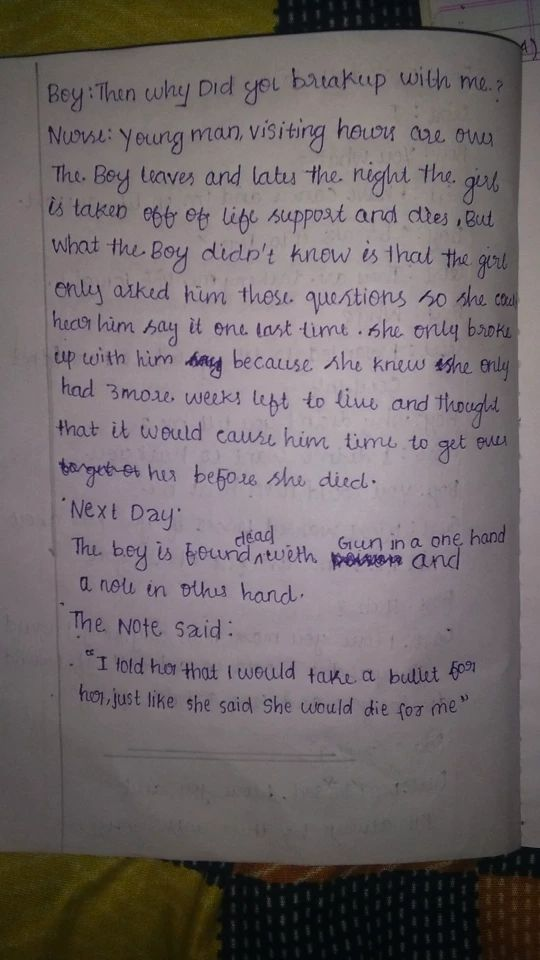 Boy: Then why Did you breakup with me.?
Nurse: Young man, visiting hours are over
The Boy leaves and later the night the girl
is taken off of life support and dies, But
what the Boy didn't know is that the girl
only asked him those questions so she could
hear him say it one last time. she only broke
up with him because she knew she only
had 3 more weeks left to live and thought
that it would cause him time to get over
her before she died.
Next Day
The boy is found dead with Gun in a one hand and
a note in other hand.
The Note Said:
"I told her that I would take a bullet for
her, just like she said She would die for me"